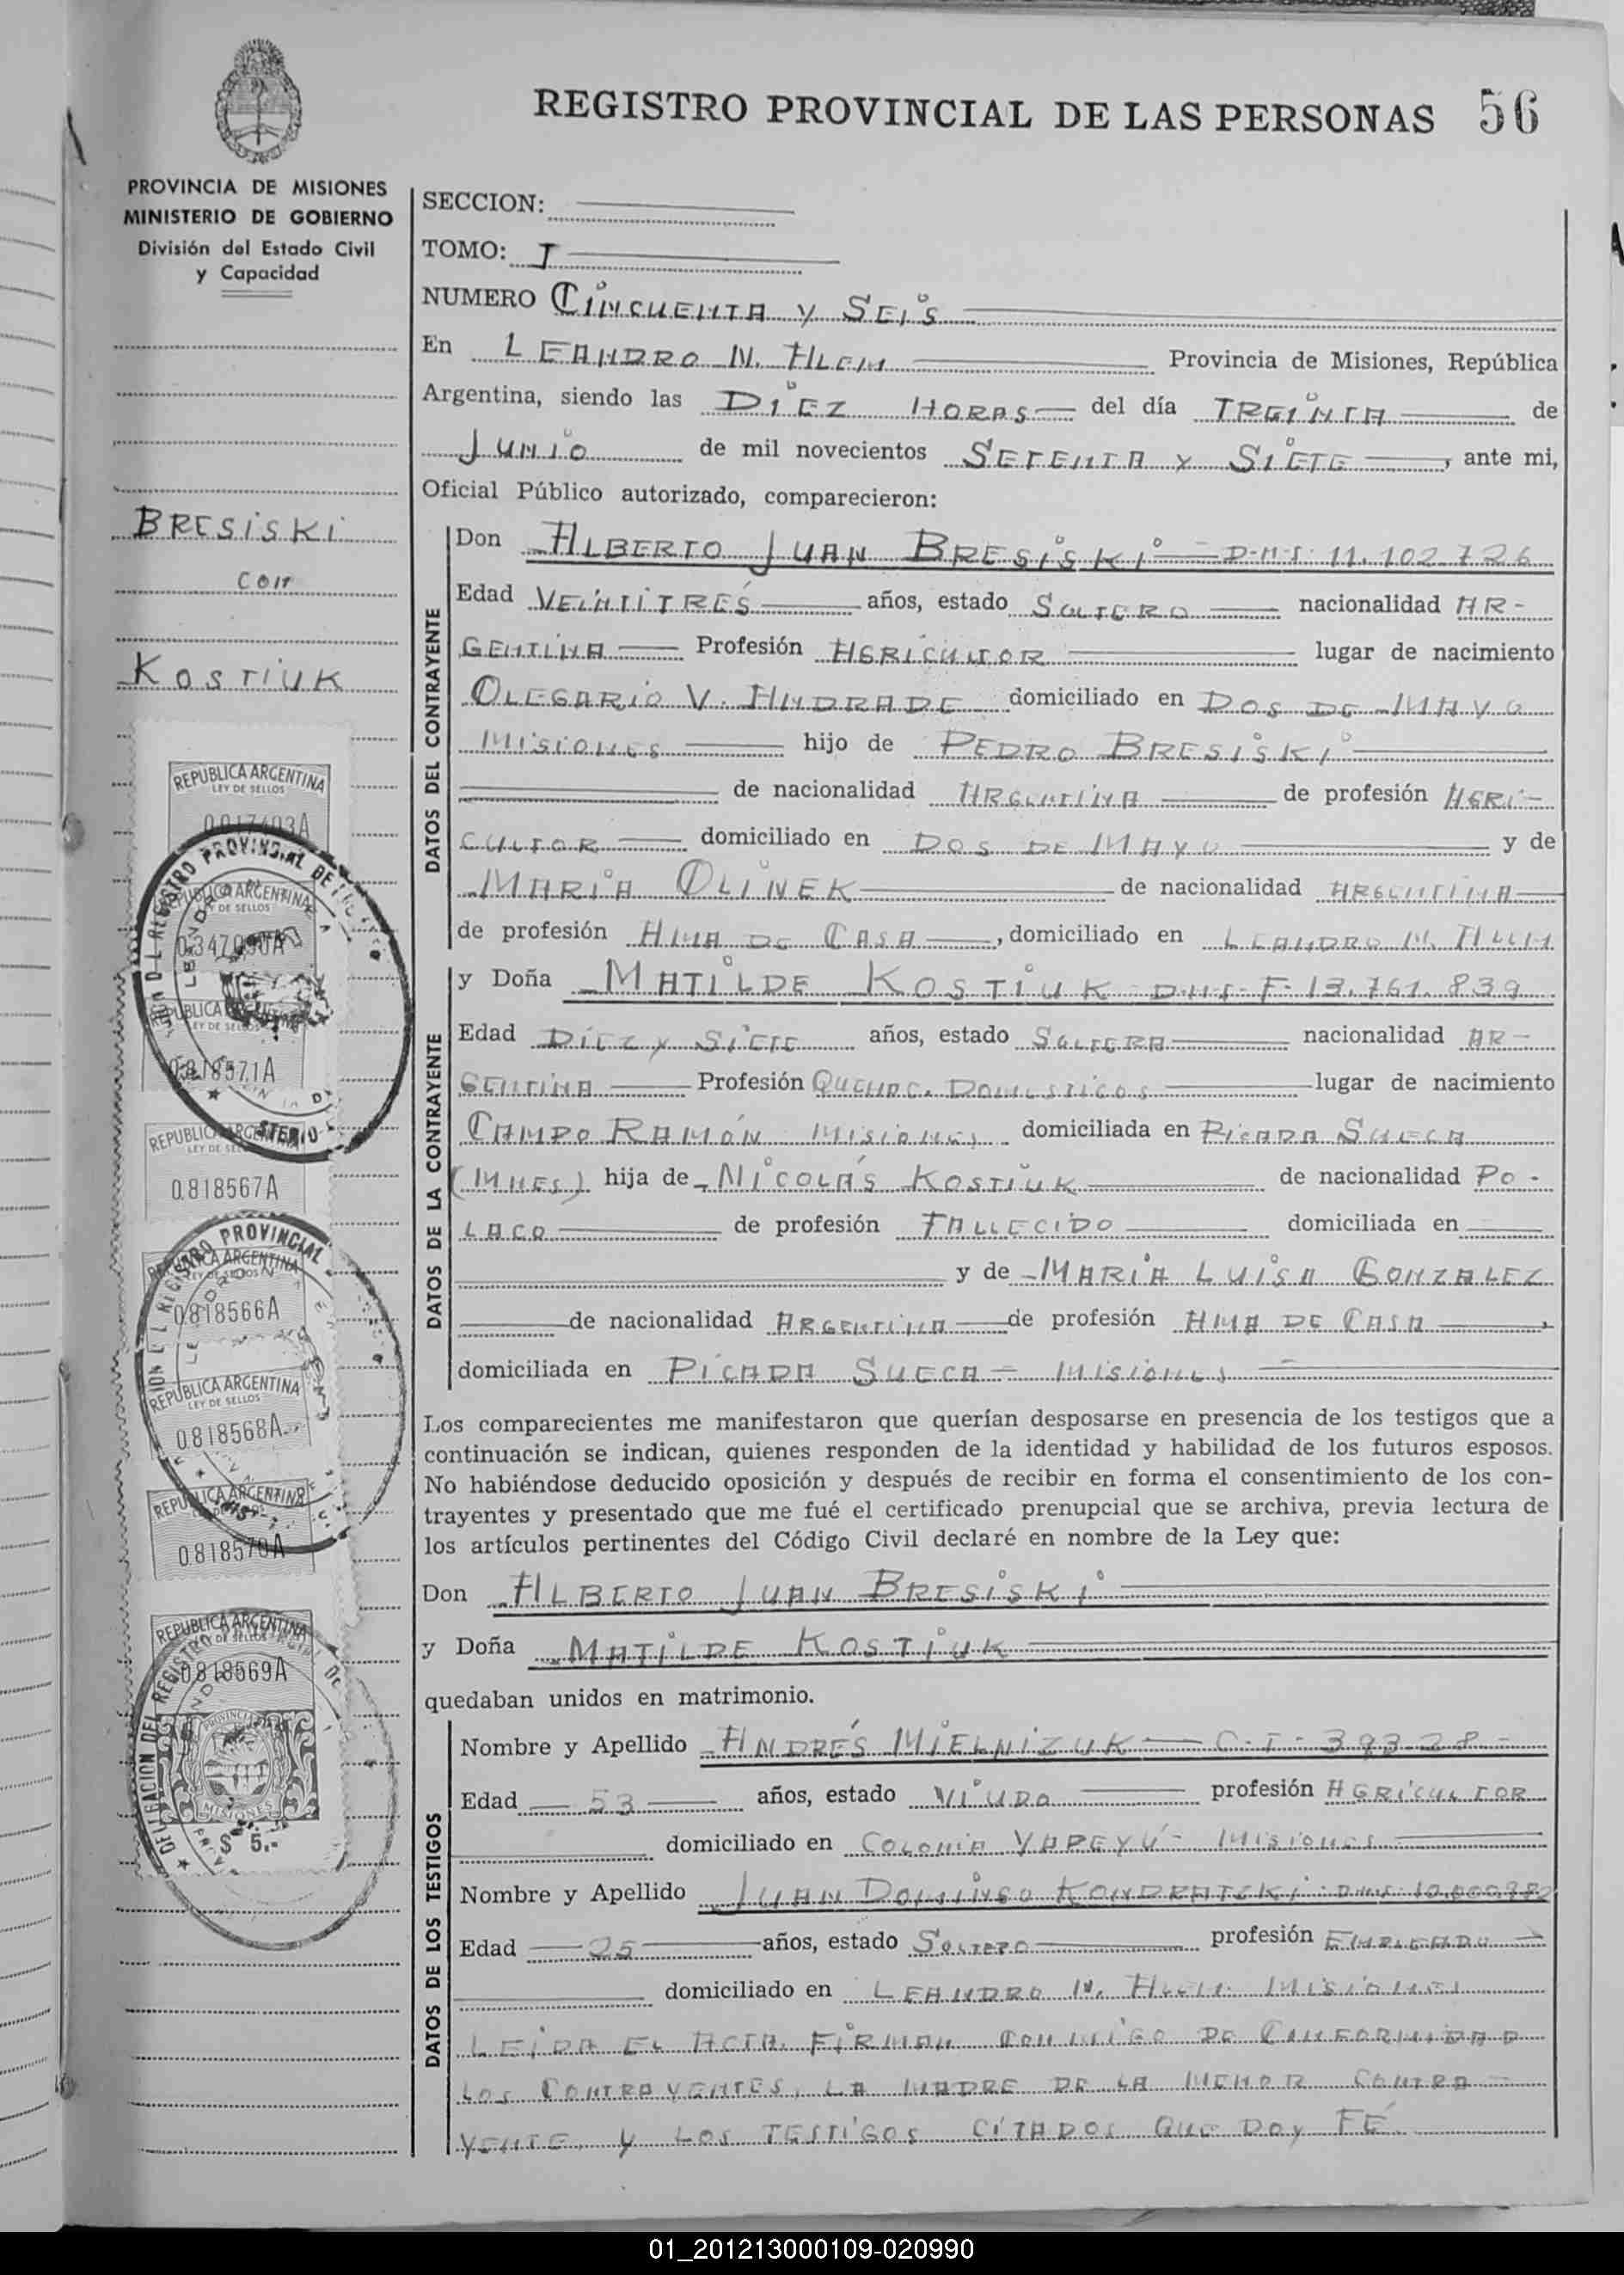 REGISTRO PROVINCIAL DE LAS PERSONAS 56
PROVINCIA DE MISIONES
MINISTERIO DE GOBIERNO
División del Estado Civil
y Capacidad
BRESiSKi
CON
KOSTiUK
REPUBLICA ARGENTINA
LEY DE SELLOS
REPUBLICA ARGENTINA
DE SELLOS
0818571A
0.818567A
0818566A
REPUBLICA ARGENTINA
LEY DE SELLOS
0818568A
0818570A
REPUBLICA ARGENTINA
0818569A
MISIONES
$ 5.-
SECCION:
TOMO: I
NUMERO CiNCUENTA Y SEiS
En LEANDRO N. ALEM Provincia de Misiones, República
Argentina, siendo las DiEZ HORAS del día TREiNTA de
JUNiO de mil novecientos SETENTA Y SiETE, ante mi,
Oficial Público autorizado, comparecieron:
DATOS DEL CONTRAYENTE
Don ALBERTO JUAN BRESiSKi - D.N.I. 11.102.726
Edad VEiNTiTRES años, estado SOLTERO nacionalidad AR-
GENTiNA Profesión AGRiCULTOR lugar de nacimiento
OLEGARiO V. ANDRADE domiciliado en DOS DE MAYO
MiSiONES hijo de PEDRO BRESiSKi
de nacionalidad ARGENTiNA de profesión AGRi-
CULTOR domiciliado en DOS DE MAYO y de
MARiA OLiNEK de nacionalidad ARGENTiNA
de profesión AMA DE CASA, domiciliado en LEANDRO N. ALEM
DATOS DE LA CONTRAYENTE
y Doña MATiLDE KOSTiUK D.N.I. F. 13.761.839
Edad DiEZ Y SiETE años, estado SOLTERA nacionalidad AR-
GENTiNA Profesión QUEHAC. DOMESTiCOS lugar de nacimiento
CAMPO RAMÓN MiSiONES domiciliada en PiCADA SUECA
(MNES) hija de NiCOLÁS KOSTiUK de nacionalidad PO-
LACO de profesión FALLECiDO domiciliada en
y de MARiA LUiSA GONZALEZ
de nacionalidad ARGENTiNA de profesión AMA DE CASA,
domiciliada en PiCADA SUECA - MiSiONES
Los comparecientes me manifestaron que querían desposarse en presencia de los testigos que a
continuación se indican, quienes responden de la identidad y habilidad de los futuros esposos.
No habiéndose deducido oposición y después de recibir en forma el consentimiento de los con-
trayentes y presentado que me fué el certificado prenupcial que se archiva, previa lectura de
los artículos pertinentes del Código Civil declaré en nombre de la Ley que:
Don ALBERTO JUAN BRESiSKi
y Doña MATiLDE KOSTiUK
quedaban unidos en matrimonio.
DATOS DE LOS TESTIGOS
Nombre y Apellido ANDRÉS MiELNiZUK C.I. 393.28-
Edad 53 años, estado ViUDO profesión AGRiCULTOR
domiciliado en COLONiA YAPEYÚ - MiSiONES
Nombre y Apellido JUAN DOMiNGO KONDRATZKi D.N.I.
Edad 25 años, estado SOLTERO profesión EMPLEADO
domiciliado en LEANDRO N. ALEM MiSiONES
LEiDA EL ACTA, FiRMAN CONMiGO DE CONFORMiDAD
LOS CONTRAYENTES, LA MADRE DE LA MENOR CONTRA-
YENTE Y LOS TESTiGOS CiTADOS QUE DOY FÉ.
01_201213000109-020990